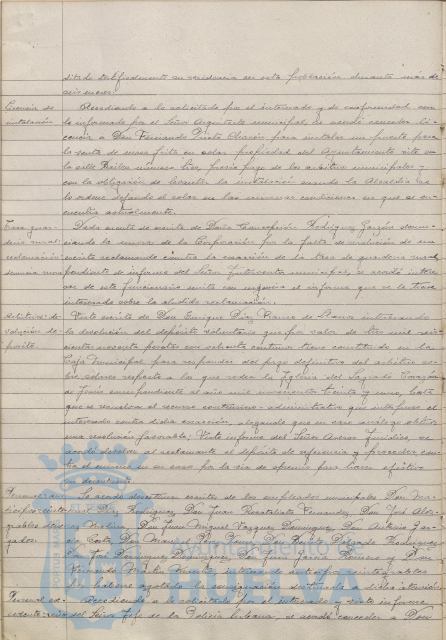 ditado debidamente su residencia en esta población durante más de
seis meses.
Licencia de
instalación
Accediendo a lo solicitado por el interesado y de conformidad con
lo informado por el Señor Arquitecto municipal, se acordó conceder li-
cencia a Don Fernando Prieto para instalar un puesto para
la venta de en solar propiedad del Ayuntamiento sito en
la calle número tres, previo pago de los arbitrios municipales y
con la obligación de levantar la instalación cuando la Alcaldía se
lo ordene dejando el solar en las mismas condiciones en que se en-
cuentra actualmente.
Tasa guar-
dería rural
reclamación
Dada cuenta de escrito de Doña Concepción Rodríguez Garzón denun-
ciando la mora de la Corporación por la falta de resolución de su
escrito reclamando contra la exacción de la tasa de guardería rural
pendiente de informe del Señor Interventor municipal, se acordó intere-
sar de este funcionario emita con urgencia el informe que se le tiene
interesado sobre la aludida reclamación.
Visto escrito de Don Enrique Díaz de interesando
la devolución del depósito voluntario que por valor de tres mil seis-
cientas noventa pesetas con ochenta céntimos tiene constituido en la
Caja Municipal para responder del pago definitivo del arbitrio so-
bre solares respecto a los que rodea la Iglesia del Sagrado Corazón
de Jesús correspondiente al año mil novecientos treinta y cinco, hasta
que se resolviera el recurso contencioso-administrativo que interpuso el
interesado contra dicha exacción, alegando que en caso análogo obtuvo
una resolución favorable; Visto informe del Señor Asesor Jurídico, se
acordó devolver al reclamante el depósito de referencia y proceder con-
tra el mismo en su caso por la vía de apremio para hacer efectivo
su descubierto.
Se acordó desestimar escritos de los empleados municipales Don Ma-
nuel Díaz Rodríguez, Don Juan Fernández, Don José
Molina, Don José Miguel Vázquez Domínguez, Don Antonio Gar-
cía Costa, Don Manuel Pérez Don Benito Delgado Domínguez
Don José Domínguez Domínguez, Don José García Romero y Don
Fernando Martín interesando anticipos reintegrables
por haberse agotado la consignación destinada a dicha atención.
Accediendo a lo solicitado por el interesado y visto informe
del Señor Jefe de la Policía Urbana, se acordó conceder a Don
Ayuntamiento de
HUELVA